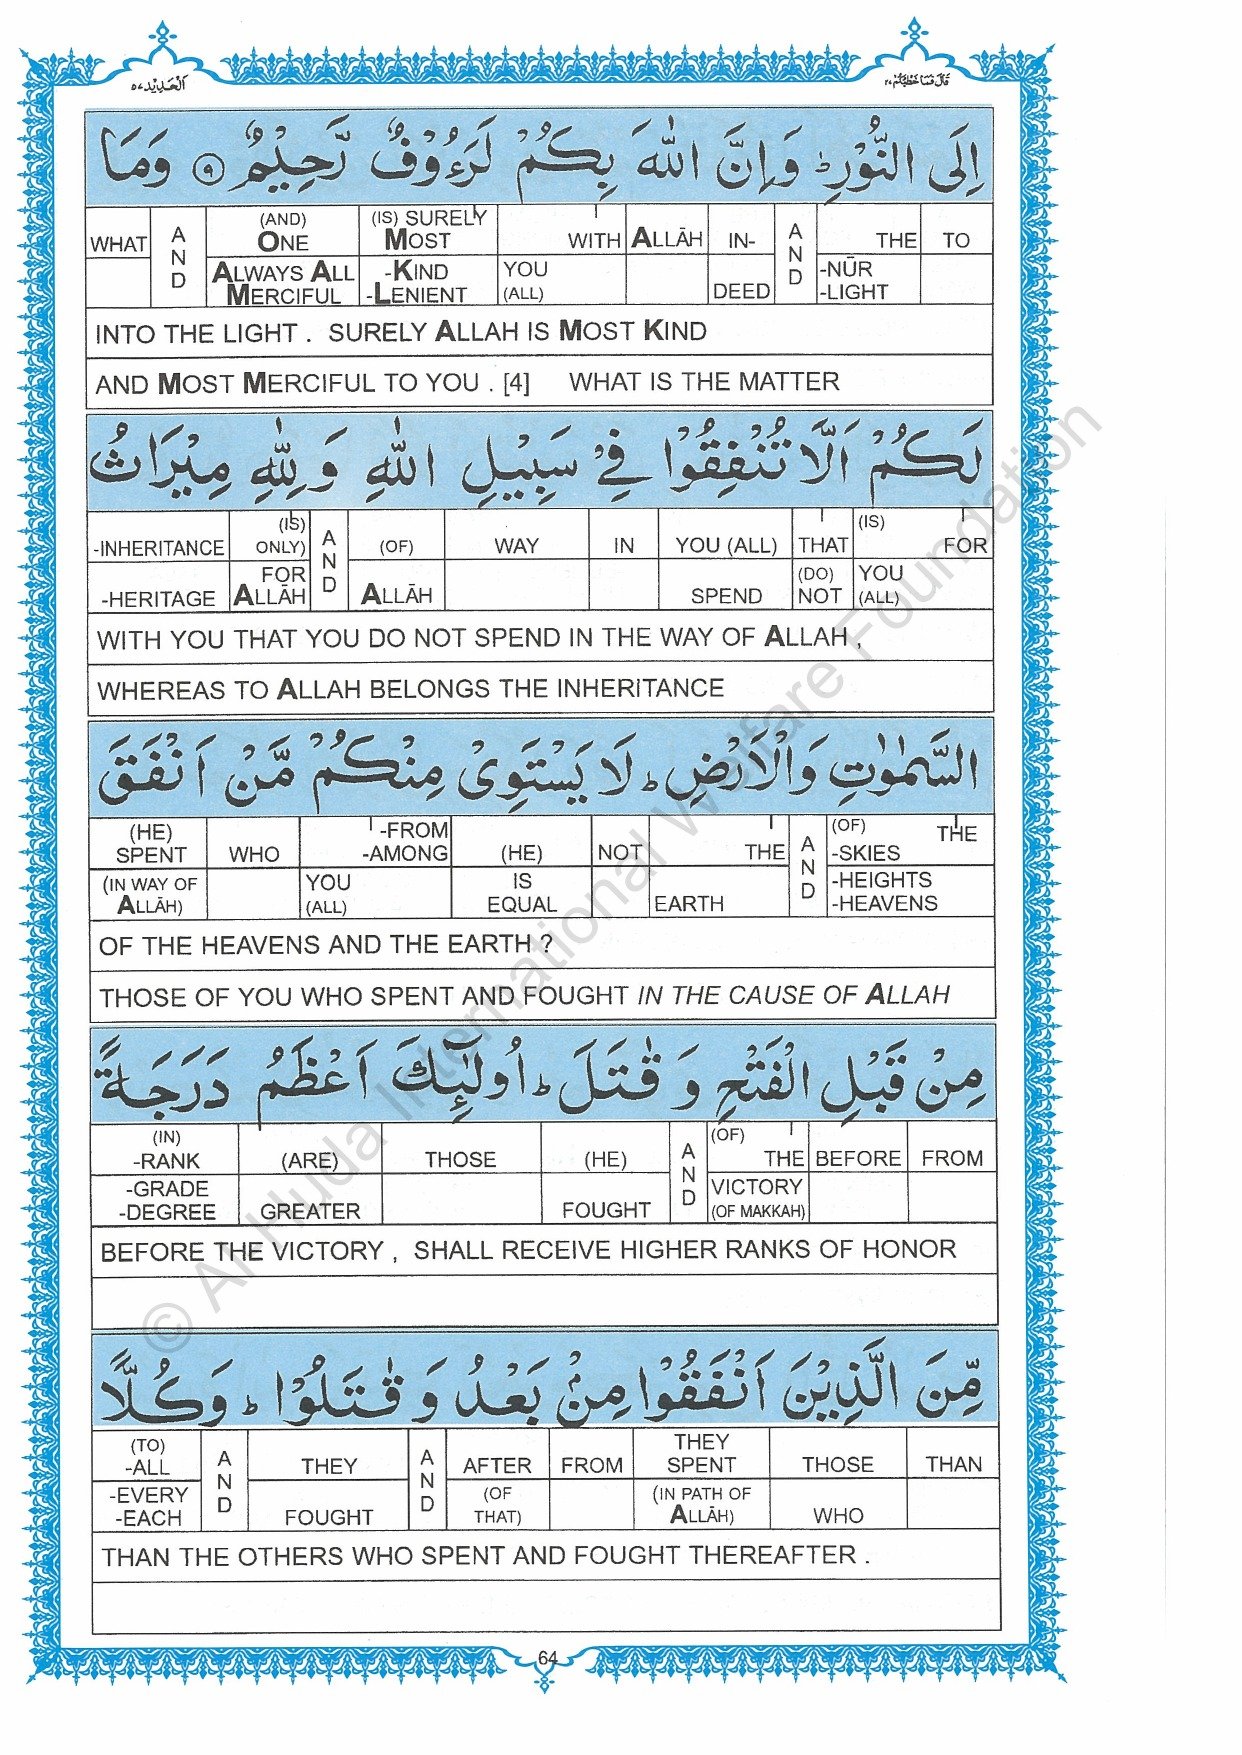 اَلْحَدِيْد ٥٧
قَالَ فَمَا خَطْبُكُمْ ٢٧
اِلَى النُّوْرِ ؕ وَاِنَّ اللّٰهَ بِكُمْ لَرَءُوْفٌ رَّحِيْمٌ ﴿۹﴾ وَمَا
WHAT | AND | (AND) ONE ALWAYS ALL MERCIFUL | (IS) SURELY MOST -KIND -LENIENT | WITH YOU (ALL) | ALLĀH | IN-DEED | AND | THE -NŪR -LIGHT | TO
INTO THE LIGHT . SURELY ALLAH IS MOST KIND
AND MOST MERCIFUL TO YOU . [4] WHAT IS THE MATTER
لَكُمْ اَلَّا تُنْفِقُوْا فِيْ سَبِيْلِ اللّٰهِ وَ لِلّٰهِ مِيْرَاثُ
-INHERITANCE -HERITAGE | (IS) ONLY) FOR ALLĀH | AND | (OF) ALLĀH | WAY | IN | YOU (ALL) SPEND | THAT (DO) NOT | (IS) FOR YOU (ALL)
WITH YOU THAT YOU DO NOT SPEND IN THE WAY OF ALLAH ,
WHEREAS TO ALLAH BELONGS THE INHERITANCE
السَّمٰوٰتِ وَالْاَرْضِ ؕ لَا يَسْتَوِىْ مِنْكُمْ مَّنْ اَنْفَقَ
(HE) SPENT (IN WAY OF ALLĀH) | WHO | -FROM -AMONG YOU (ALL) | (HE) IS EQUAL | NOT | THE EARTH | AND | (OF) THE -SKIES -HEIGHTS -HEAVENS
OF THE HEAVENS AND THE EARTH ?
THOSE OF YOU WHO SPENT AND FOUGHT IN THE CAUSE OF ALLAH
مِنْ قَبْلِ الْفَتْحِ وَ قٰتَلَ ؕ اُولٰٓئِكَ اَعْظَمُ دَرَجَةً
(IN) -RANK -GRADE -DEGREE | (ARE) GREATER | THOSE | (HE) FOUGHT | AND | (OF) THE VICTORY (OF MAKKAH) | BEFORE | FROM
BEFORE THE VICTORY , SHALL RECEIVE HIGHER RANKS OF HONOR
مِّنَ الَّذِيْنَ اَنْفَقُوْا مِنْۢ بَعْدُ وَ قٰتَلُوْا ؕ وَكُلًّا
(TO) -ALL -EVERY -EACH | AND | THEY FOUGHT | AND | AFTER (OF THAT) | FROM | THEY SPENT (IN PATH OF ALLĀH) | THOSE WHO | THAN
THAN THE OTHERS WHO SPENT AND FOUGHT THEREAFTER .
64
© Al-Huda International Welfare Foundation